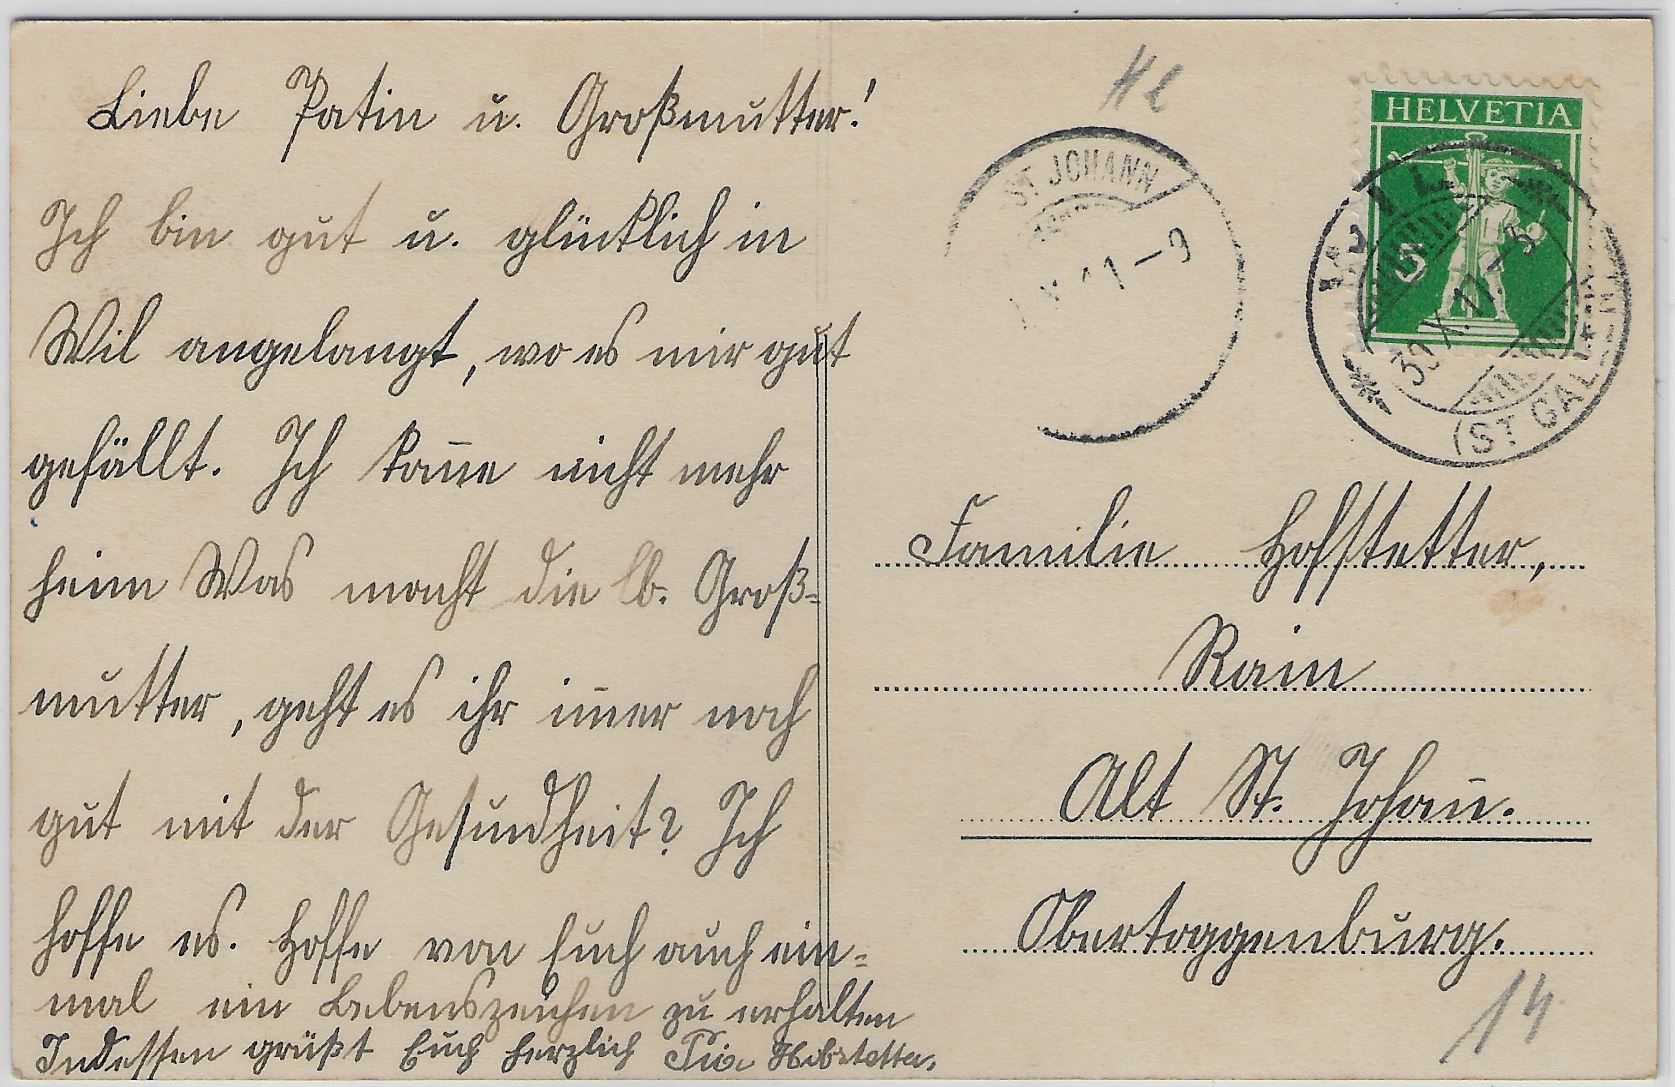 Liebe Patin u. Großmutter!
Ich bin gut u. glücklich in
Wil angelangt, wo es mir gut
gefällt. Ich kan̄e nicht mehr
heim Was macht die lb. Groß=
mutter, geht es ihr im̄er noch
gut mit der Gesundheit? Ich
hoffe es. Hoffe von Euch auch ein=
mal ein Lebenszeichen zu erhalten
Indessen grüßt Euch herzlich
HELVETIA
ST JOHANN
11-9
WIL
30.X.11.-5
(ST GALLEN)
Familie Hofstetter,
Rain
Alt St. Johan̄.
Obertoggenburg.
14